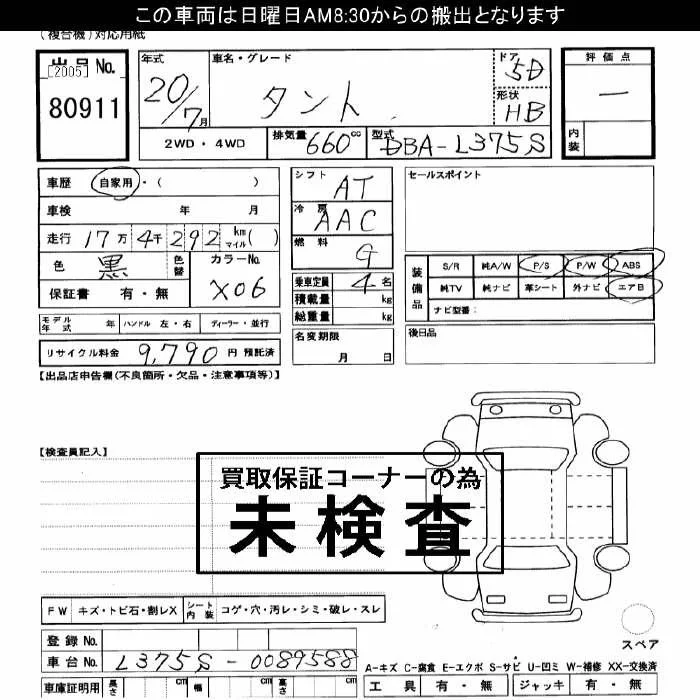 この車両は日曜日AM8:30からの搬出となります
(複合機)対応用紙
出品No. [2005] 80911
年式 20/7月
車名・グレード タント
ドア 5D
形状 HB
評価点 —
内装
2WD・4WD 排気量 660cc 型式 DBA-L375S
車歴 自家用・( )
車検 年 月
走行 17万4千292 km マイル( )
色 黒 色替 カラーNo. X06
保証書 有・無
シフト AT
冷房 AAC
燃料 G
乗車定員 4名
積載量 kg
総重量 kg
セールスポイント
装備品 S/R 純A/W P/S P/W ABS
純TV 純ナビ 革シート 外ナビ エアB
ナビ型番:
モデル年式 年 ハンドル 左・右 ディーラー・並行
名変期限 月 日
後日品
リサイクル料金 9,790 円 預託済
【出品店申告欄(不良箇所・欠品・注意事項等)】
【検査員記入】
買取保証コーナーの為
未検査
FW キズ・トビ石・割レX シート内装 コゲ・穴・汚レ・シミ・破レ・スレ
スペア
登録No.
車台No. L375S-0089588
A-キズ C-腐食 E-エクボ S-サビ U-凹ミ W-補修 XX-交換済
車庫証明用 長さ cm 幅 cm 高さ cm
工具 有・無 ジャッキ 有・無